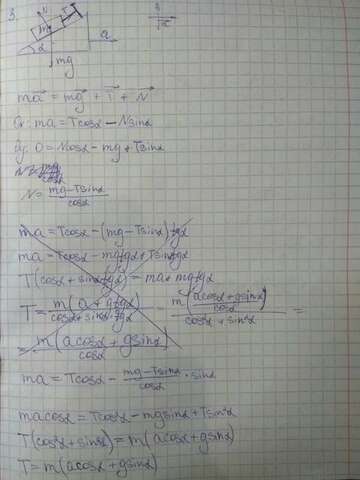 3.
N T
m
α
a
mg
ma⃗ = mg⃗ + T⃗ + N⃗
Ox: ma = Tcosα - Nsinα
Oy: 0 = Ncosα - mg + Tsinα
N = (mg - Tsinα)/cosα
ma = Tcosα - (mg - Tsinα)tgα
ma = Tcosα - mgtgα + Tsinαtgα
T(cosα + sinα·tgα) = ma + mgtgα
T = m(a + gtgα)/(cosα + sinα·tgα) = m((acosα + gsinα)/cosα)/(cos²α + sin²α) =
= m(acosα + gsinα)/cosα
ma = Tcosα - (mg - Tsinα)/cosα · sinα
macosα = Tcos²α - mgsinα + Tsin²α
T(cos²α + sin²α) = m(acosα + gsinα)
T = m(acosα + gsinα)